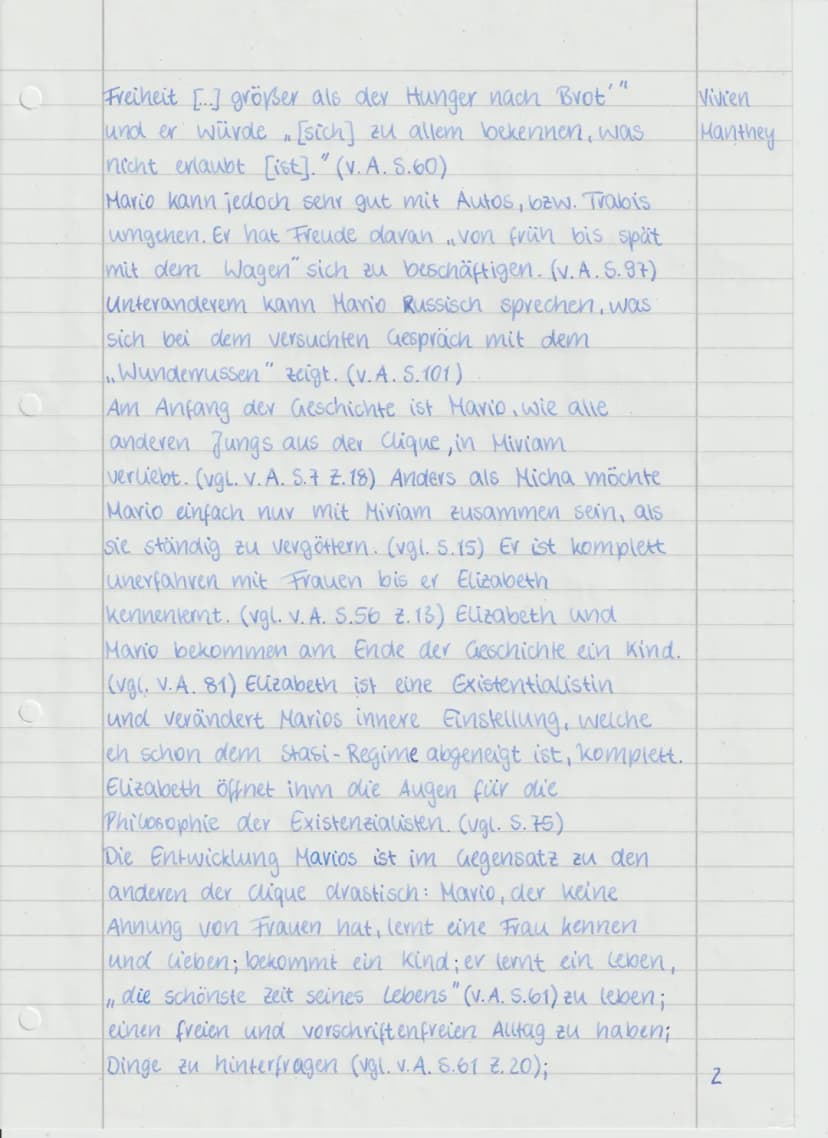 Freiheit [...] größer als der Hunger nach Brot'" Vivien
und er würde „[sich] zu allem bekennen, was Manthey
nicht erlaubt [ist]." (v. A. S.60)
Mario kann jedoch sehr gut mit Autos, bzw. Trabis
umgehen. Er hat Freude daran „von früh bis spät
mit dem Wagen" sich zu beschäftigen. (v. A. S. 97)
Unteranderem kann Mario Russisch sprechen, was
sich bei dem versuchten Gespräch mit dem
„Wunderrussen" zeigt. (v. A. S. 101)
Am Anfang der Geschichte ist Mario, wie alle
anderen Jungs aus der Clique, in Miriam
verliebt. (vgl. v. A. S.7 Z.18) Anders als Micha möchte
Mario einfach nur mit Miriam zusammen sein, als
sie ständig zu vergöttern. (vgl. S.15) Er ist komplett
unerfahren mit Frauen bis er Elizabeth
kennenlernt. (vgl. v. A. S.56 Z.13) Elizabeth und
Mario bekommen am Ende der Geschichte ein Kind.
(vgl. v. A. 81) Elizabeth ist eine Existentialistin
und verändert Marios innere Einstellung, welche
eh schon dem Stasi-Regime abgeneigt ist, komplett.
Elizabeth öffnet ihm die Augen für die
Philosophie der Existenzialisten. (vgl. S.75)
Die Entwicklung Marios ist im Gegensatz zu den
anderen der Clique drastisch: Mario, der keine
Ahnung von Frauen hat, lernt eine Frau kennen
und lieben; bekommt ein Kind; er lernt ein Leben,
„die schönste Zeit seines Lebens" (v. A. S.61) zu leben;
einen freien und vorschriftenfreien Alltag zu haben;
Dinge zu hinterfragen (vgl. v. A. S.61 Z.20);
2